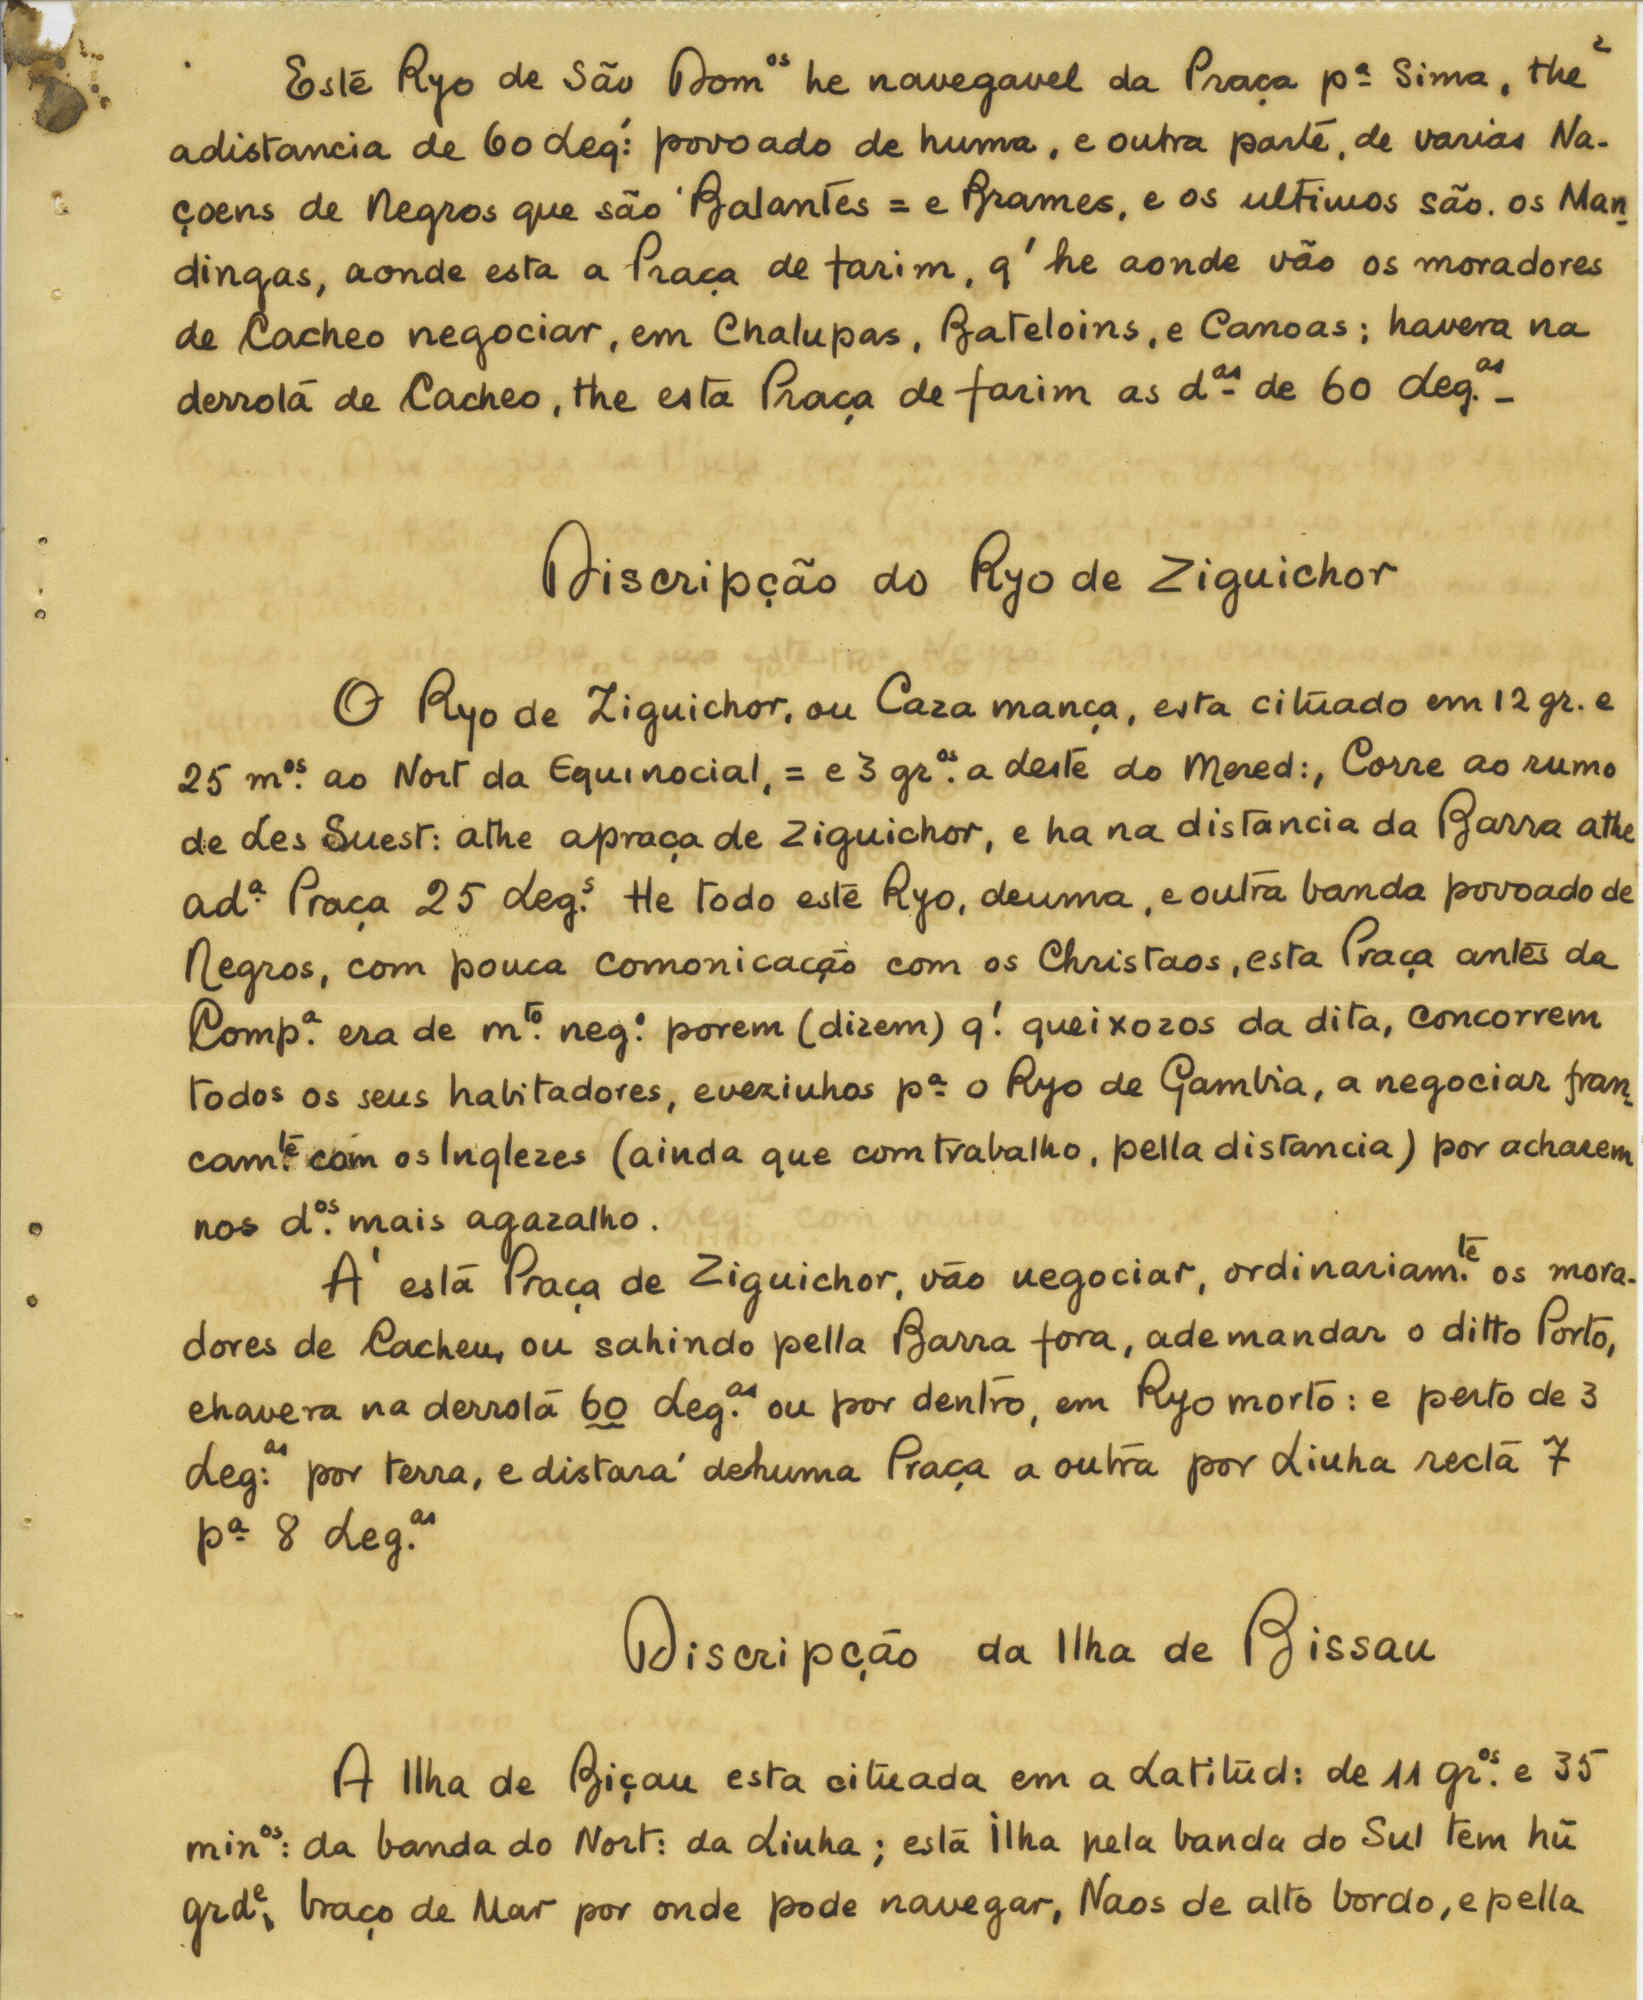 2
Este Ryo de São Dom.os he navegavel da Praça p.a Sima, the
adistancia de 60 Leg.: povoado de huma, e outra parte, de varias Na-
çoens de Negros que são Balantes = e Brames, e os ultimos são. os Man-
dingas, aonde esta a Praça de farim, q' he aonde vão os moradores
de Cacheo negociar, em Chalupas, Bateloins, e Canoas; havera na
derrota de Cacheo, the esta Praça de farim as d.as de 60 Leg.as -
Discripção do Ryo de Ziguichor
O Ryo de Ziguichor, ou Caza mança, esta cituado em 12 gr. e
25 m.os ao Nort da Equinocial, = e 3 gr.os a Leste do Mered:, Corre ao rumo
de Les Suest: athe apraça de Ziguichor, e ha na distancia da Barra athe
ad.a Praça 25 Leg.s He todo este Ryo, deuma, e outra banda povoado de
Negros, com pouca comonicação com os Christaos, esta Praça antes da
Comp.a era de m.to neg.o porem (dizem) q'. queixozos da dita, concorrem
todos os seus habitadores, evezinhos p.a o Ryo de Gambia, a negociar fran-
cam.te com os Inglezes (ainda que com trabalho, pella distancia) por acharem
nos d.os mais agazalho.
A' esta Praça de Ziguichor, vão negociar, ordinariam.te os mora-
dores de Cacheu, ou sahindo pella Barra fora, ademandar o ditto Porto,
ehavera na derrota 60 Leg.as ou por dentro, em Ryo morto: e perto de 3
Leg:as por terra, e distara' dehuma Praça a outra por Linha recta 7
p.a 8 Leg.as
Discripção da Ilha de Bissau
A Ilha de Biçau esta cituada em a Latitud: de 11 gr.os e 35
min.os: da banda do Nort: da Linha; esta Ilha pela banda do Sul tem hũ
grd.e, braço de Mar por onde pode navegar, Naos de alto bordo, e pella